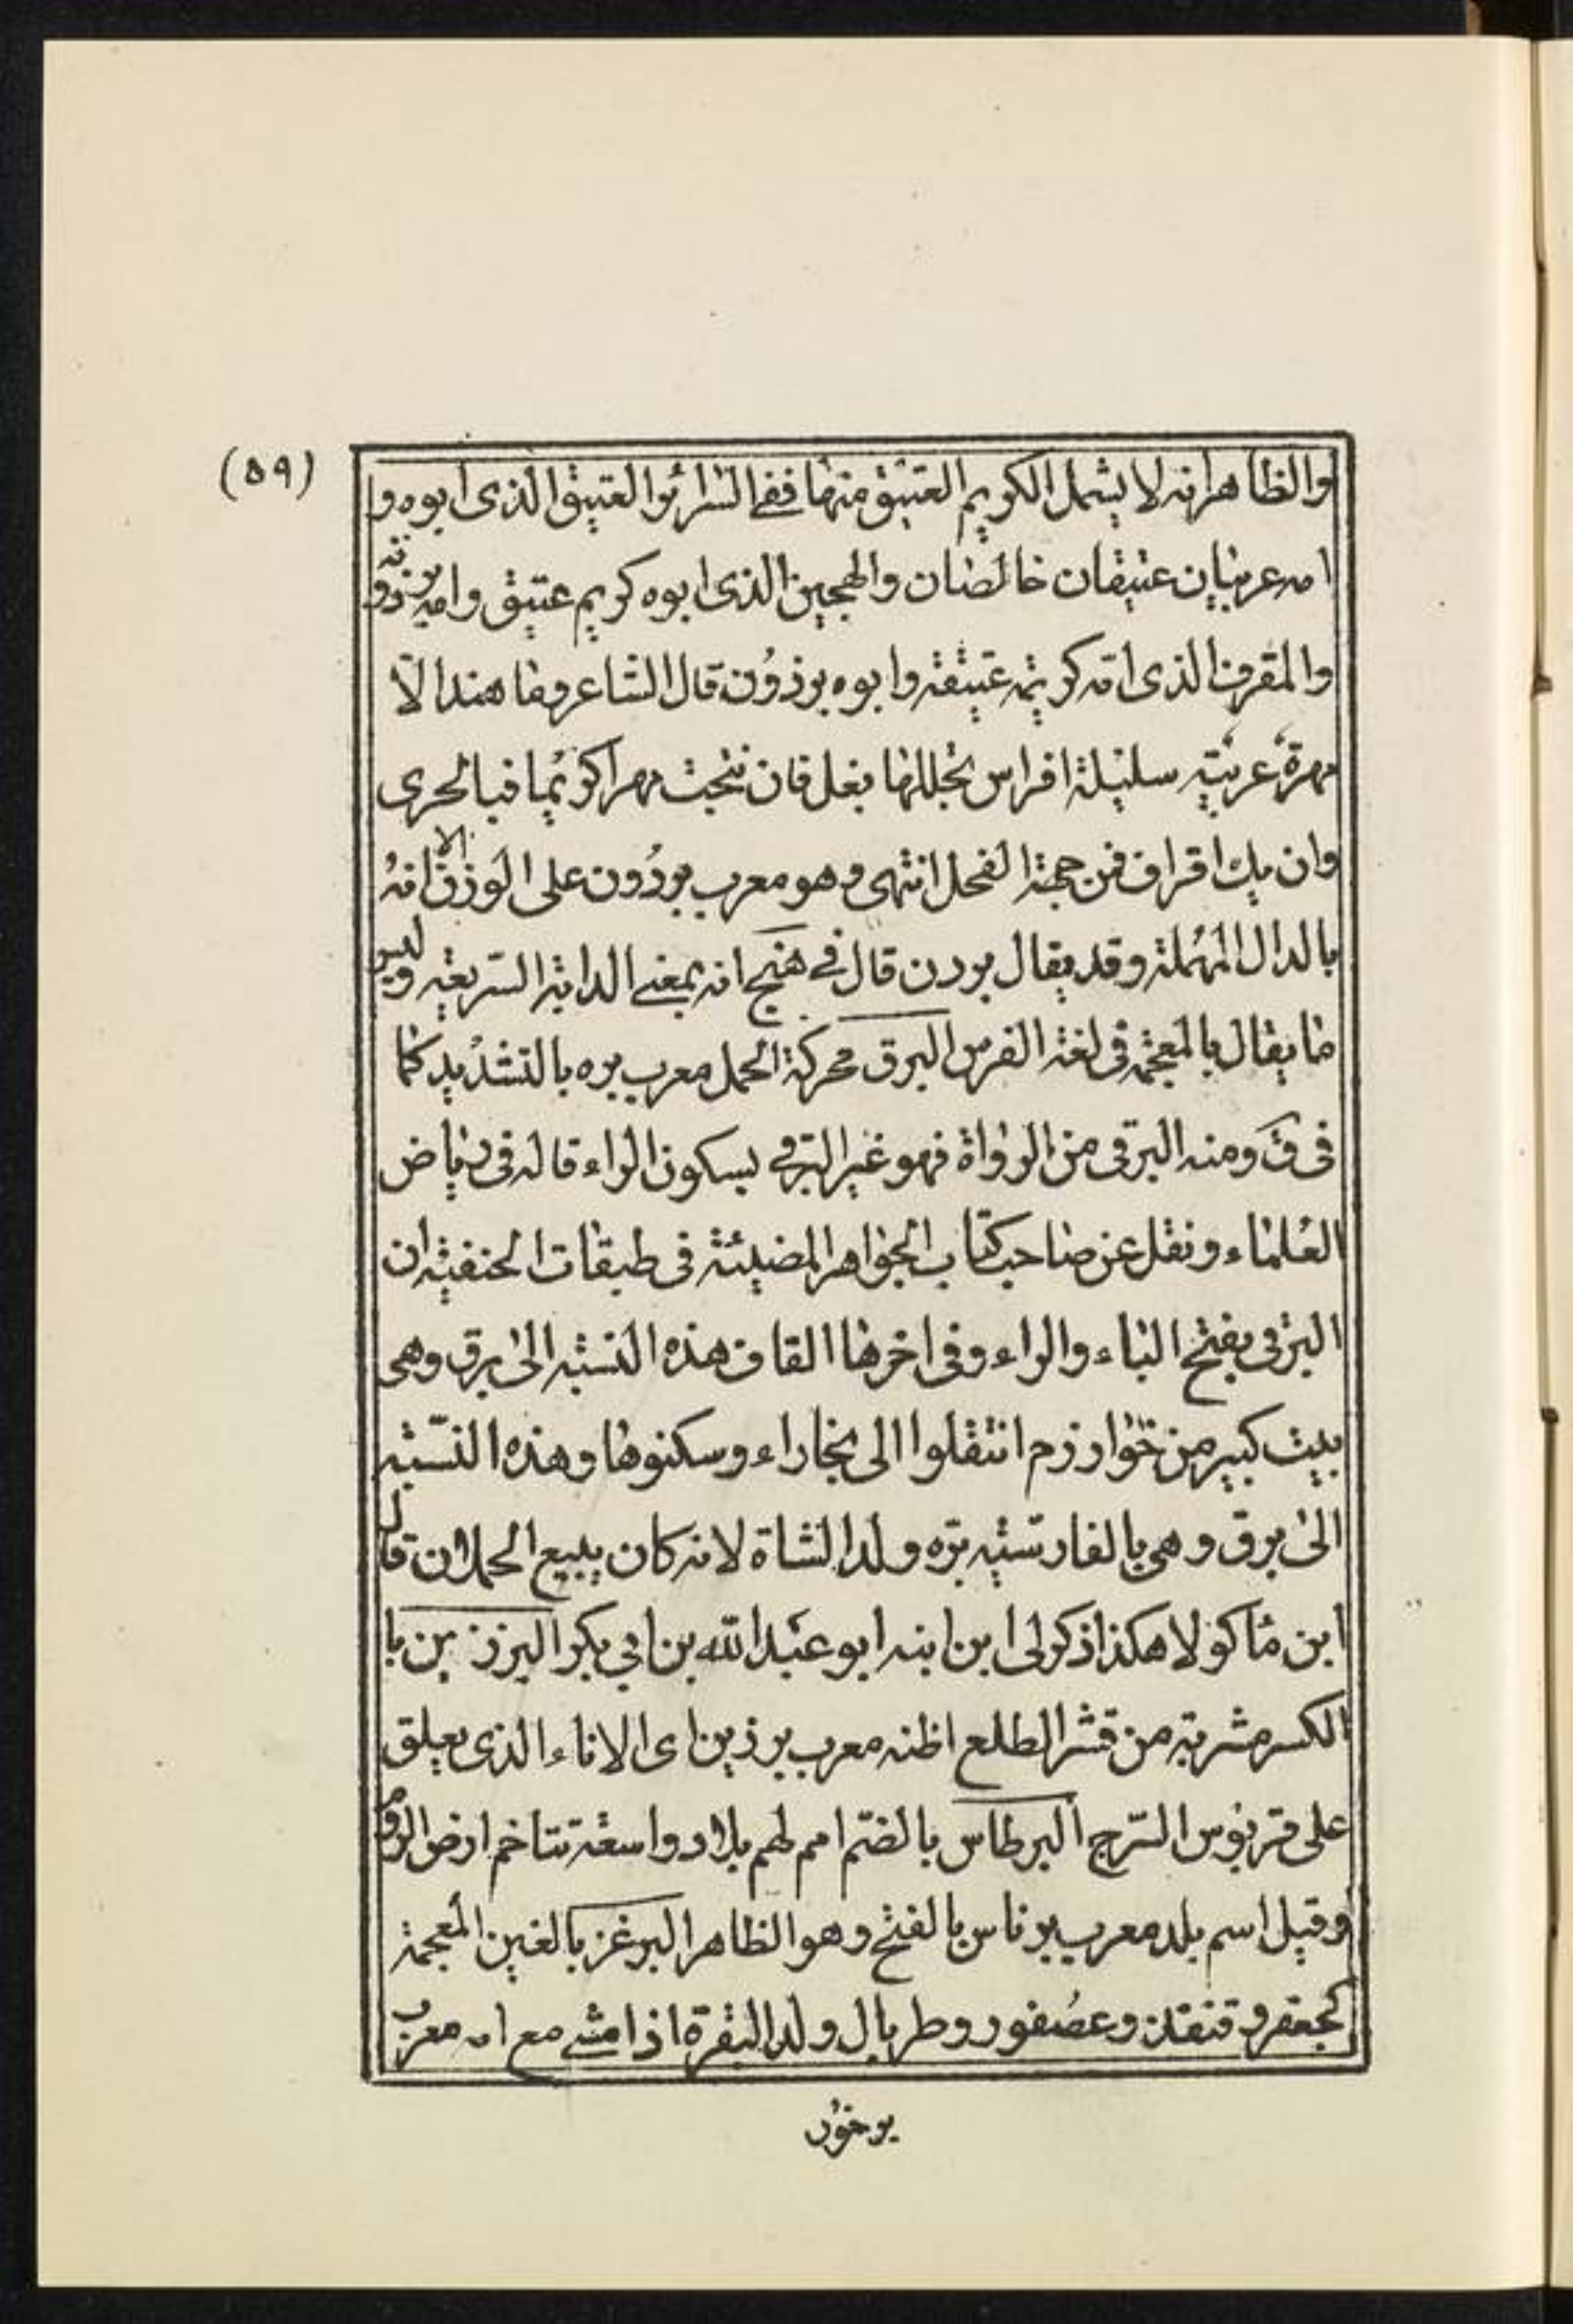 (٥٩)
والظاهر انه لا يشمل الكريم العتيق منهما ففي السرائر العتيق الذى ابوه و
امه عربيان عتيقان خالصان والهجين الذى ابوه كريم عتيق وامه برذونه
والمقرف الذى امّه كريمة عتيقة وابوه برذون قال الشاعر وما هند الّا
مهرة عربيّة سليلة افراس تجللها بغل فان نتجت مهرا كريما فبالحرى
وان يك اقراف فمن جهة الفحل انتهى وهو معرب بردون على الوزن الا انه
بالدال المهملة وقد يقال بردن قال في هنج انه بمعنى الدابة السريعة وليس
مما يقال بالمعجمة فى لغة الفرس البرق محركة الحمل معرب بره بالتشديد كما
فى ق ومنه البرقى من الرواة فهو غير البرقى بسكون الراء قاله فى رياض
العلماء ونقل عن صاحب كتاب الجواهر المضيئة فى طبقات الحنفية ان
البرقى بفتح الباء والراء وفى اخرها القاف هذه النسبة الى برق وهى
بيت كبير من خوارزم انتقلوا الى بخاراء وسكنوها وهذه النسّبة
الى برق وهى بالفارسيّة برّه ولد الشاة لانه كان يبيع الحملان قال
ابن ماكولا هكذا ذكر لى ابن ابنه ابو عبد الله بن ابي بكر البرزين با
الكسر مشربة من قشر الطلع اظنه معرب برزين اى الاناء الذى يعلق
على قربوس السّرج البرطاس بالضّم امم لهم بلاد واسعة تتاخم ارض الروم
وقيل اسم بلد معرب برناس بالفتح وهو الظاهر البرغز بالغين المعجمة
كجعفر وقنفذ وعصفور وطربال ولد البقرة اذا مشى مع امه معرب
برخور